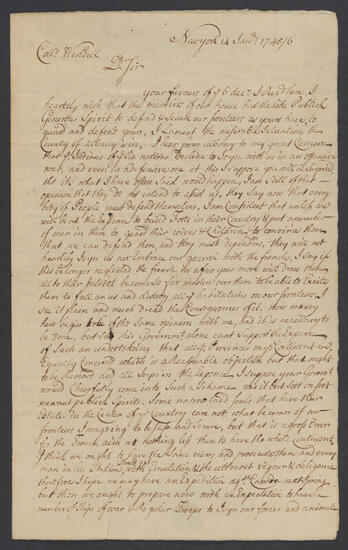 New york 14 Jan.ʸ 1745/6
Coll.º Wendell
D.ʳ Sir
your favours of yᵉ 6 decr. I Recd here, I
heartely wish that the members of our house had the like Publick
Generous Spirit to defend & secure our frontiers as yours have, to
guard and defend yours, I Lament the miserable Situation the
County of albany is in, I hear from albany to my great Concern
that yᵉ Indians of yᵉ Six nations decline to Joyn with us in an offensive
war, and even in a defensive one at this I suppose you not be surprised
tho its what I have often Said would happen, I am Still of that
opinion that they do not intend to assist us, they Say now that every
body of People must defend themselves, I am Confident that unless we
will be at the Expence to build Forts in their Country & put a number
of men in them to guard their wives & Children, to convince them
that we can defend them and they must depend on us, they will not
heartily Joyn us nor Embrace our quarrel with the french, I say if
this be longer neglected the french in a few years more will draw them
all to their Interest become so far master over them to be able to Excite
them to fall on us and destroy all yᵉ habitations on our frontiers, I
see it plain and much dread the Consequences of it. How many
here begin to be of the Same opinion with me, and it is necessary to
be done, but say this Governmᵗ alone can not Support the Expence
of Such an undertaking that other Provinces may Continent are
Equally Concernd which is a Reasonable objection but that ought
to be Removd and all Joyn in the Expence, I suppose your Governmᵗ
would Chearfully come into Such a Scheme who it but set on foot
we want publick Spirits. Some narrow hard souls that have their
Estates in the Center of yᵉ Country care not what becomes of our
frontiers Imagining to be safe and secure, but that is a gross Error
for the French aim at nothing less then to have the whole Continent
I think we ought to have the Same views and prosecute them and every
man in his Station Should act with Emulation & the uttmost vigour & diligence
therefore I hope we may have an expedition agᵗ Canada next Spring
but then we ought to prepare now with an Expectation to have a
number of Ships of war & Regular Troops to Joyn our forces and animate